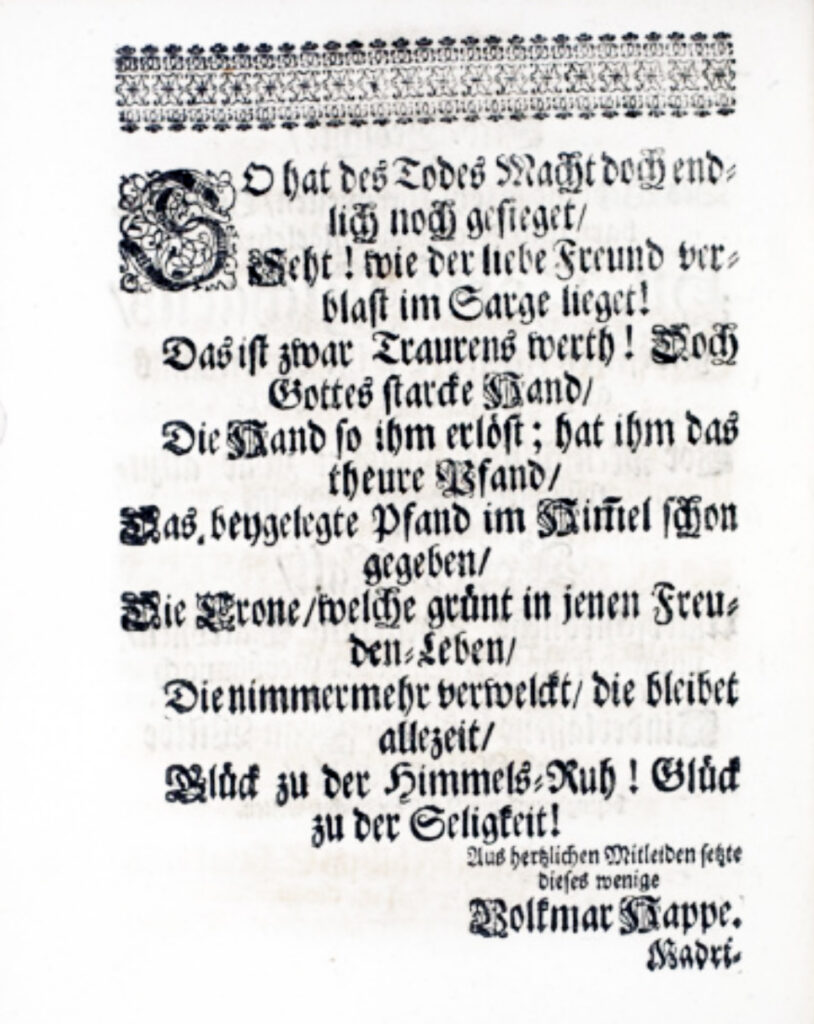 SO hat des Todes Macht doch end-
lich noch gesieget/
Seht! wie der liebe Freund ver-
blast im Sarge lieget!
Das ist zwar Traurens werth! Doch
Gottes starcke Hand/
Die Hand so ihm erlöst; hat ihm das
theure Pfand/
Das, beygelegte Pfand im Him̃el schon
gegeben/
Die Crone/welche grünt in jenen Freu-
den-Leben/
Die nimmermehr verwelckt/ die bleibet
allezeit/
Glück zu der Himmels-Ruh! Glück
zu der Seligkeit!
Aus hertzlichen Mitleiden setzte
dieses wenige
Volkmar Happe.
Madri-